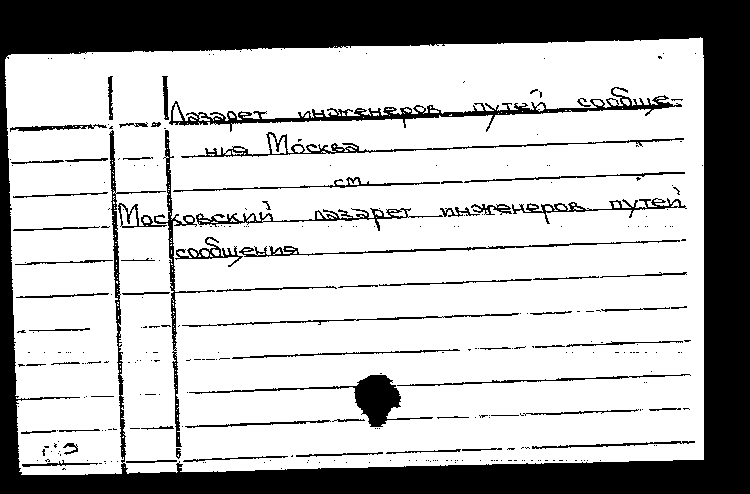 Лазарет инженеров путей сообще-
ния Москва
см.
Московский лазарет инженеров путей
сообщения